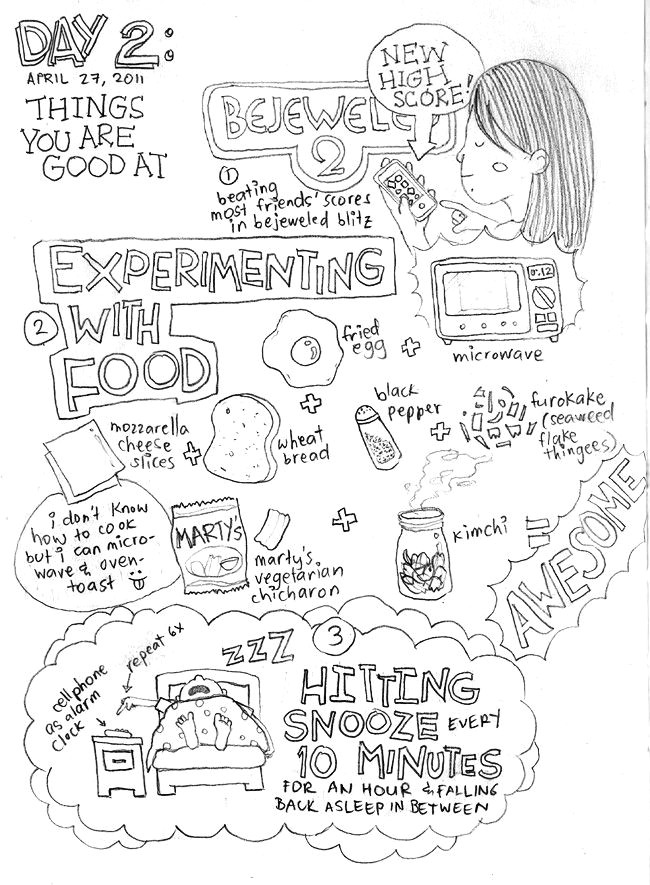 DAY 2:
APRIL 27, 2011
THINGS
YOU ARE
GOOD AT
NEW
HIGH
SCORE!
BEJEWELE
2
1
beating
most friends' scores
in bejeweled blitz
2
EXPERIMENTING
WITH
FOOD
0:12
microwave
fried
egg
+
+
mozzarella
cheese
slices
+
wheat
bread
black
pepper
+
furokake
(seaweed
flake
thingees)
i don't know
how to cook
but i can micro-
wave & oven-
toast
MARTY'S
marty's
vegetarian
chicharon
+
kimchi
=
AWESOME
3
cellphone
as alarm
clock
repeat 6x
ZZZ
HITTING
SNOOZE EVERY
10 MINUTES
FOR AN HOUR & FALLING
BACK ASLEEP IN BETWEEN